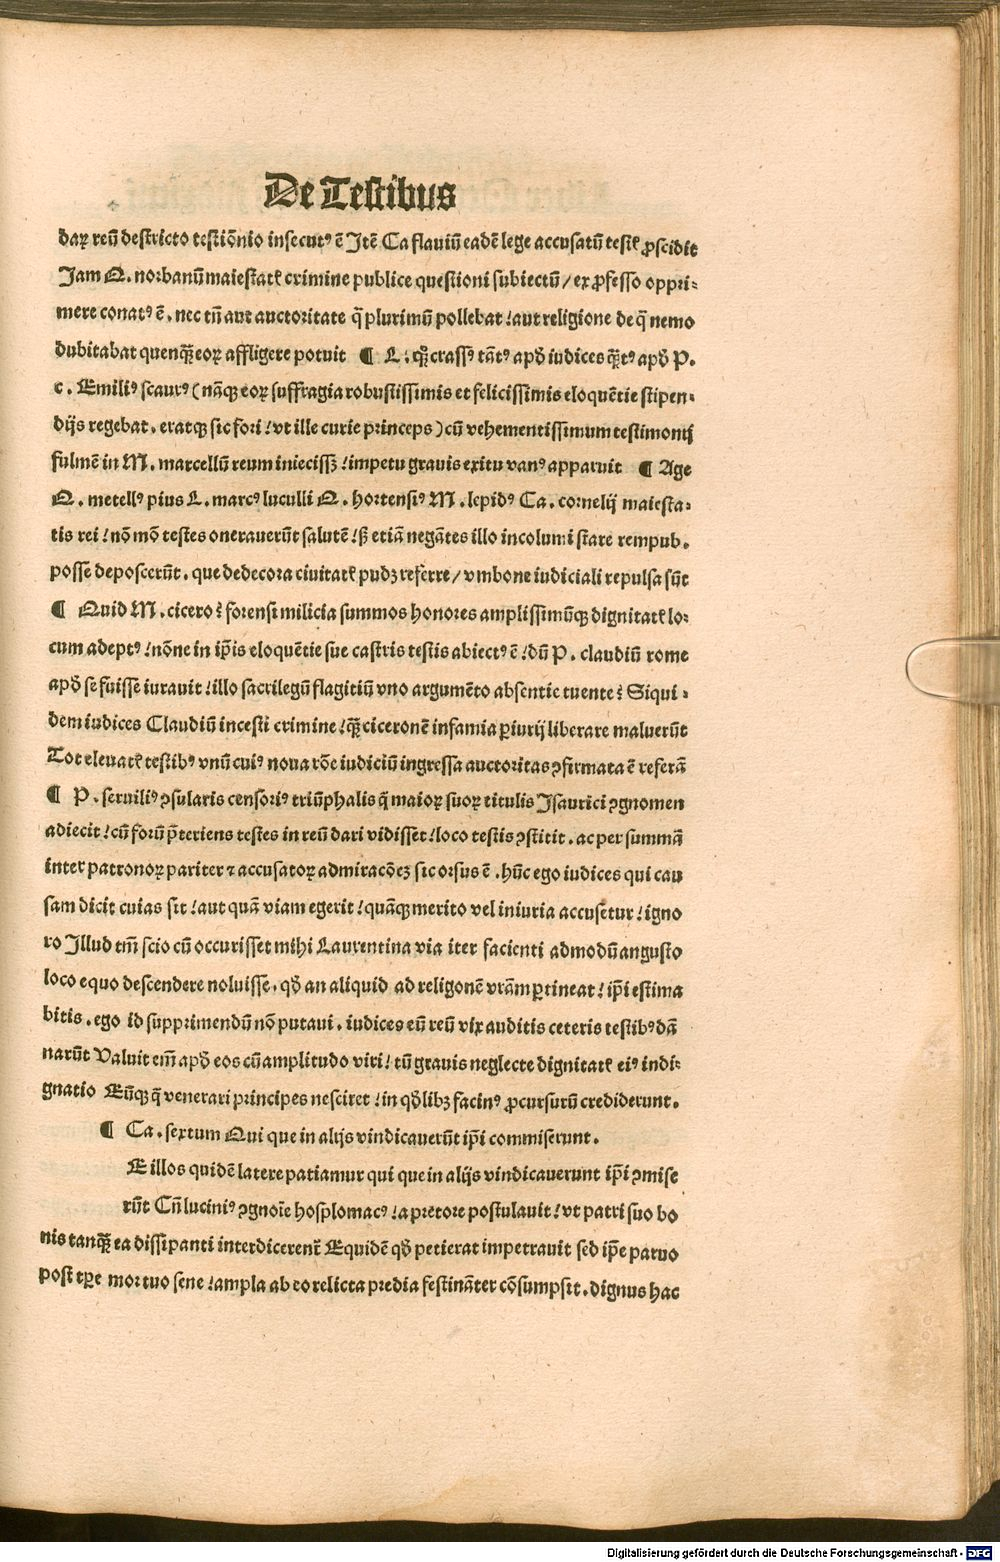 De Testibus
daꝝ reū destricto testiōnio insecutꝰ ē Jtē Ca flauiū eadē lege accusatū testꝭ ꝓscidit
Jam Q. norbanū maiestatꝭ crimine publice questioni subiectū / ex ꝓfesso oppri⸗
mere conatꝰ ē. nec tn̄ aut auctoritate q̄ plurimū pollebat ! aut religione de q̄ nemo
dubitabat quenqꝫ̄ eoꝝ affligere potuit ¶ L. qꝫ crassꝰ tātꝰ apđ iudices qꝫ̄tꝰ apđ P.
c. Emiliꝰ scaurꝰ ( nāqꝫ eoꝝ suffragia robustissimis et felicissimis eloquētie stipen⸗
dijs regebat. eratqꝫ sic fori ! vt ille curie princeps ) cū vehementissimum testimonij
fulmē in M. marcellū reum iniecissꝫ ! impetu grauis exitu vanꝰ apparuit ¶ Age
Q. metellꝰ pius L. marcꝰ luculli Q. hortensiꝰ M. lepidꝰ Ca. cornelij maiesta⸗
tis rei ! nō mō testes onerauerūt salutē ! ꝭß etiā negātes illo incolumi stare rempub.
posse deposcerūt. que dedecora ciuitatꝭ pudꝫ referre / vmbone iudiciali repulsa sūt
¶ Quid M. cicero ? forensi milicia summos honores amplissimūqꝫ dignitatꝭ lo⸗
cum adeptꝰ ! nōne in ip̄is eloquētie sue castris testis abiectꝰ ē ! dū P. claudiū rome
apđ se fuisse iurauit ! illo sacrilegū flagitiū vno argumēto absentie tuente ? Siqui⸗
dem iudices Claudiū incesti crimine ! qꝫ̄ ciceronē infamia ꝑiurij liberare maluerūt
Tot eleuatꝭ testibꝰ vnū cuiꝰ noua rōe iudiciū ingressa auctoritas ꝯfirmata ē referā
¶ P. seruiliꝰ ꝯsularis censoriꝰ triūphalis q̄ maioꝝ suoꝝ titulis Jsaurici ꝯgnomen
adiecit ! cū forū p̄teriens testes in reū dari vidisset ! loco testis ꝯstitit. ac per summā
inter patronoꝝ pariter ⁊ accusatoꝝ admiracōeꝫ sic orsus ē. hūc ego iudices qui cau
sam dicit cuias sit ! aut quā viam egerit ! quāqꝫ merito vel iniuria accusetur ! igno
ro Jllud tm̄ scio cū occurisset mihi Laurentina via iter facienti admodū angusto
loco equo descendere noluisse. qđ an aliquid ad religonē vrām ꝑtineat ! ip̄i estima
bitis. ego id supprimendū nō putaui. iudices eū reū vix auditis ceteris testibꝰ dā
narūt Valuit em̄ apđ eos cū amplitudo viri ! tū grauis neglecte dignitatꝭ eiꝰ indi⸗
gnatio Eūqꝫ q̄ venerari principes nesciret ! in qđlibꝫ facinꝰ ꝓcursurū crediderunt.
¶ Ca. sextum Qui que in alijs vindicauerūt ip̄i commiserunt.
E illos quidē latere patiamur qui que in alijs vindicauerunt ip̄i ꝯmise
rūt Cn̄ luciniꝰ ꝯgnoīe hosplomacꝰ ! a pretore postulauit ! vt patri suo bo
nis tanqꝫ̄ ea dissipanti interdicerent̄ Equidē qđ petierat impetrauit sed ip̄e paruo
post tꝑe mortuo sene ! ampla ab eo relicta predia festināter cōsumpsit. dignus hac
Digitalisierung gefördert durch die Deutsche Forschungsgemeinschaft - DFG